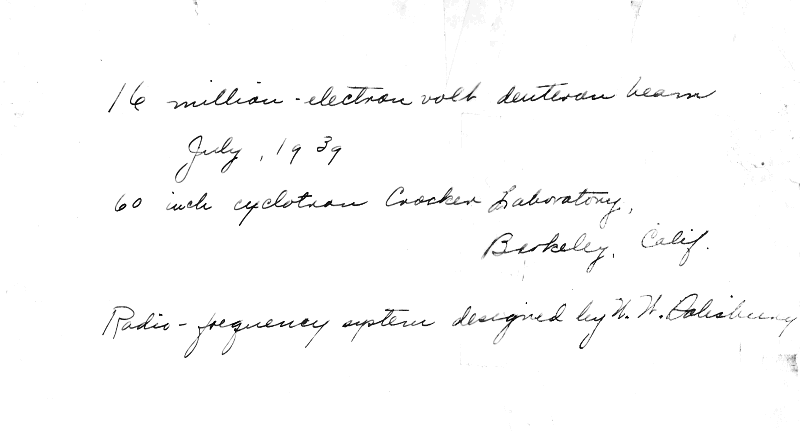 16 million-electron volt deuteron beam
July, 1939
60 inch cyclotron Crocker Laboratory,
Berkeley, Calif.
Radio-frequency system designed by W. W. Salisbury